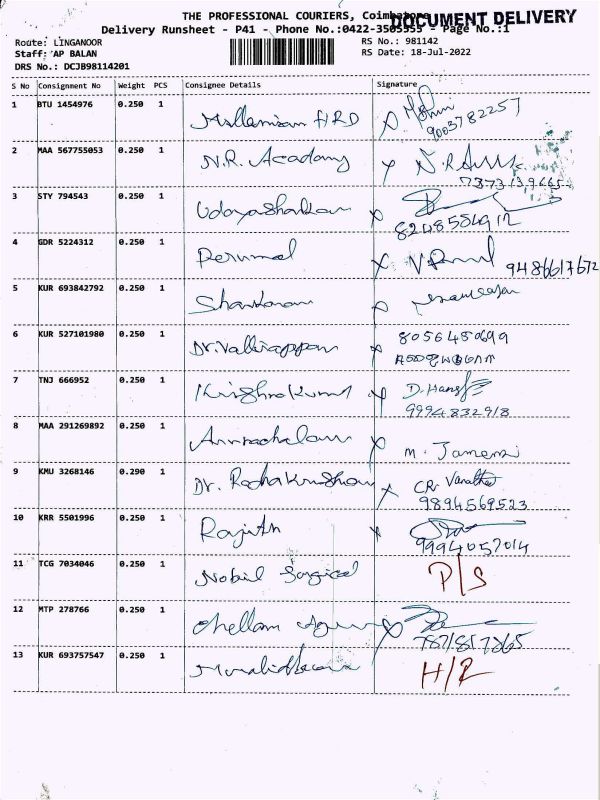 THE PROFESSIONAL COURIERS, Coimbatore
DOCUMENT DELIVERY
Delivery Runsheet - P41 - Phone No.:0422-3505555 - Page No.:1
Route: LINGANOOR RS No.: 981142
Staff: AP BALAN RS Date: 18-Jul-2022
DRS No.: DCJB98114201
S No Consignment No Weight PCS Consignee Details Signature
1 BTU 1454976 0.250 1 HRD
9003782257
2 MAA 567755053 0.250 1 N.R. Academy
3 STY 794543 0.250 1 Udayashankar
4 GDR 5224312 0.250 1 Perumal 9486617672
5 KUR 693842792 0.250 1
6 KUR 527101980 0.250 1 Dr. Valliappan 8056480699
7 TNJ 666952 0.250 1 Krishnakumar D. Hans
9994832918
8 MAA 291269892 0.250 1 Arunachalam M.
9 KMU 3268146 0.290 1 Dr. Radhakrishnan CR
9894569523
10 KRR 5501996 0.250 1 Rajith
9994057014
11 TCG 7034046 0.250 1 Nobil Surgical P/S
12 MTP 278766 0.250 1 Chellam
13 KUR 693757547 0.250 1 Muralidharan H/R